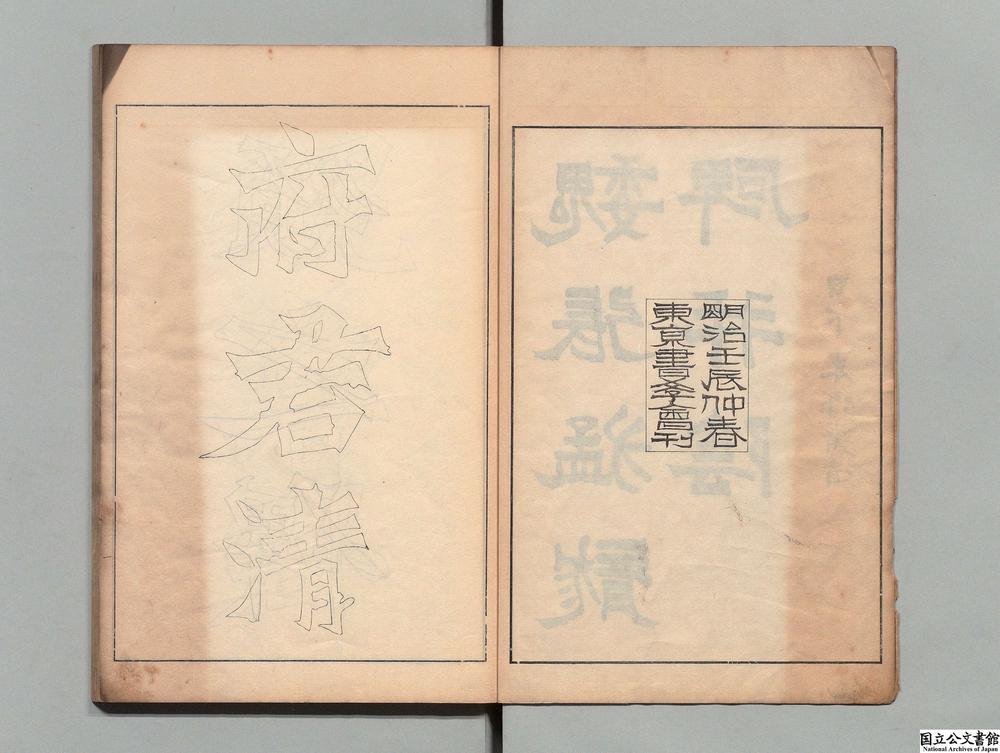 明治壬辰仲春
東京書学会刊
府君清
国立公文書館
National Archives of Japan